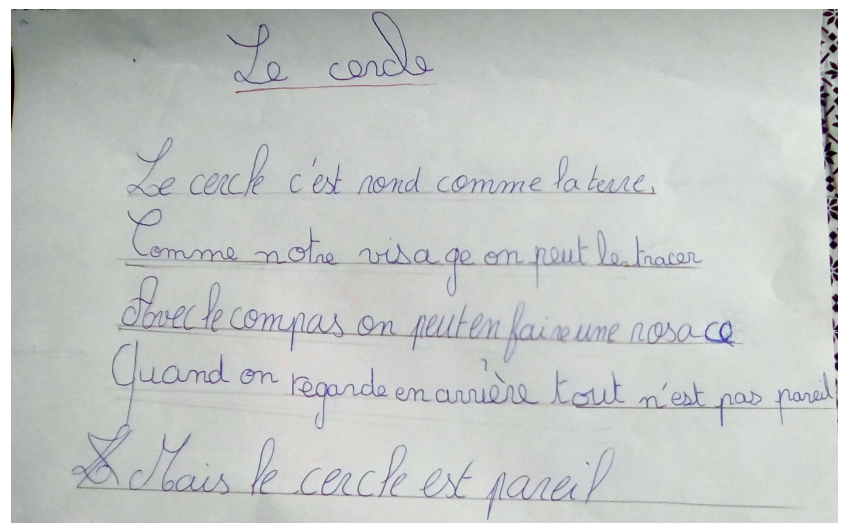 Le cercle
Le cercle c'est rond comme la terre.
Comme notre visage on peut le tracer
Avec le compas on peut en faire une rosace
Quand on regarde en arrière tout n'est pas pareil
Mais le cercle est pareil